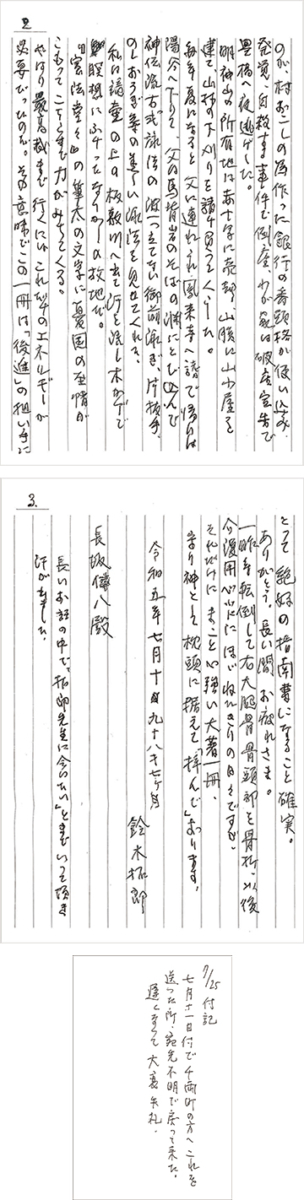 2.
のが、村おこしの為作った銀行の番頭格が使い込み
発覚、自殺する事件で倒産、わが家は破産宣告で
豊橋へ夜逃げした。
明神山の所有地は赤十字に売却、山腹に山小屋を
建て山林の下刈りを請け負ってくらした。
毎年夏になると父に連れられ鳳来寺へ詣で帰りは
湯谷へ下りて、父の馬背岩のそばの淵にとび込んで
神伝流古式泳法の波一つ立てない御前泳ぎ、片抜手、
のしなど の美しい泳法を見せてくれた。
私は講堂の上の板敷川へ出て汗を流し木かげで
瞑想にふけったなつかしの故地だ。
『宝法堂々』の筆太の文字に憂国の至情が
こもってことさら力がみてくる。
やはり最高裁まで行くにはこれだけのエネルギーが
必要だったのだ。その意味でこの一冊は「後進」の担い手に
3.
とって絶好の指南書になること確実。
ありがとう。長い間お疲れさま。
一昨年転倒して右大腿骨骨頭部を骨折、以後
介護用ベットにほぼねたきりの日々ですが、
それだけにまこと心強い大著一冊、
守り神として枕頭に据えて「拝んで」おります。
令和五年七月十日九十八才七ケ月
鈴木拓郎
長坂傳八殿
長いお話の中で、「拓郎先生に会いたい」とまでいって頂き
汗がでました。
7/25 付記
七月十一日付で千両町の方へこれを
送った所、宛先不明で戻って来た。
遅くなって大変失礼。